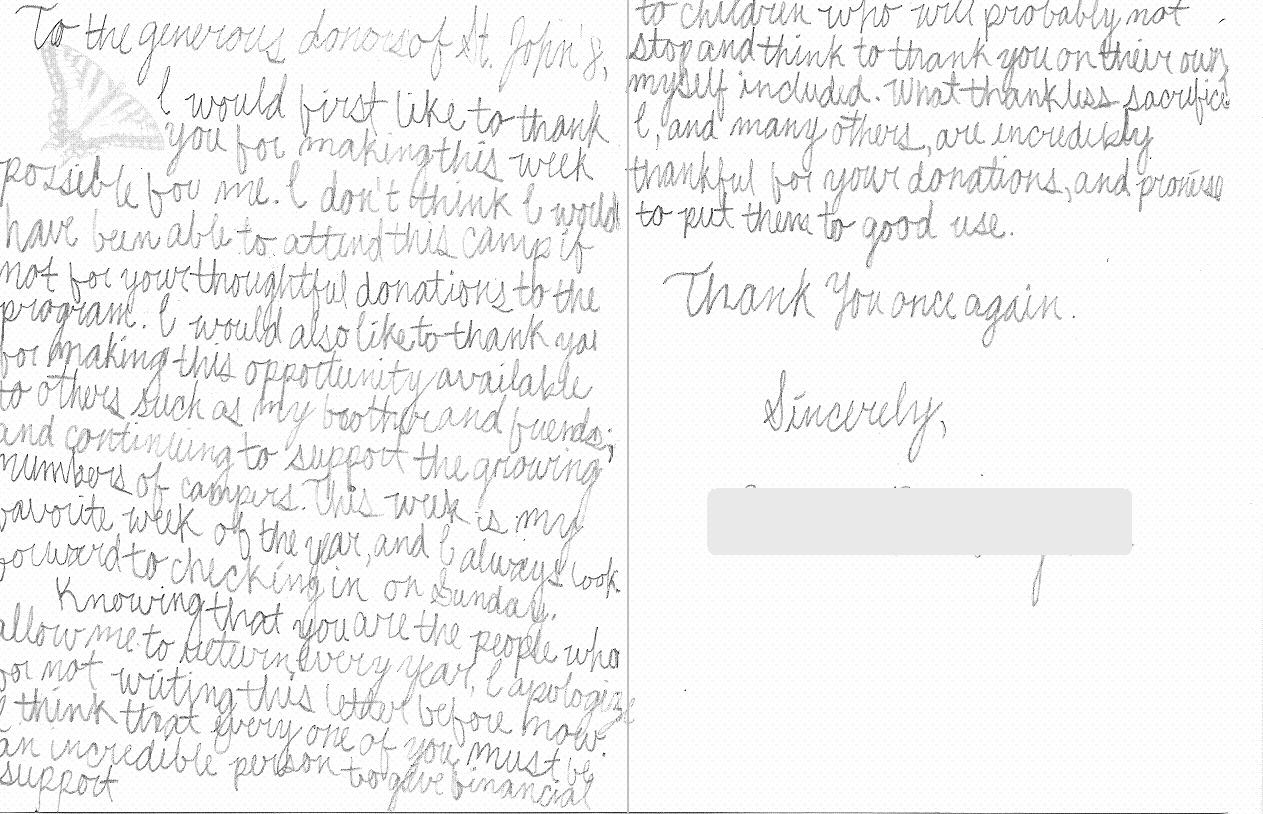 To the generous donors of St. John's,
I would first like to thank
you for making this week
possible for me. I don't think I would
have been able to attend this camp if
not for your thoughtful donations to the
program. I would also like to thank you
for making this opportunity available
to others such as my brother and friends,
and continuing to support the growing
numbers of campers. This week is my
favorite week of the year, and I always look
forward to checking in on Sunday.
Knowing that you are the people who
allow me to return every year, I apologize
for not writing this letter before now.
I think that every one of you must be
an incredible person to give financial
support
to children who will probably not
stop and think to thank you on their own,
myself included. What thankless sacrifice.
I, and many others, are incredibly
thankful for your donations, and promise
to put them to good use.
Thank You once again.
Sincerely,